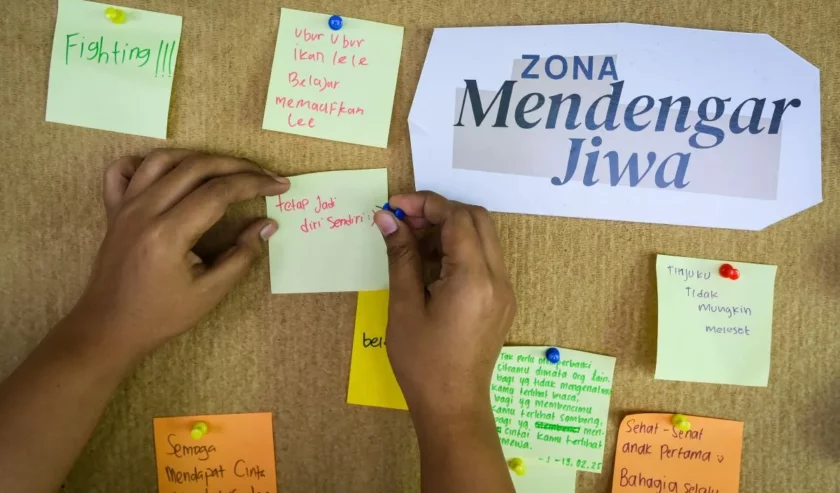 Fighting!!!
Ubur Ubur
Ikan lele
Belajar
memaafkan
Lee
ZONA
Mendengar
Jiwa
tetap Jadi
diri Sendiri :)
TINJUKU
Tidak
Mungkin
meleset
bel
Tdk perlu memperbaiki
citramu dimata org lain.
bagi yg tidak mengenalmu
kamu terlihat biasa,
bagi yg membencimu
kamu terlihat sombong,
bagi yg men-
cintai kamu terlihat
- 19.02.25
Semoga
mendapat Cinta
Sehat - Sehat
anak Pertama
Bahagia selalu